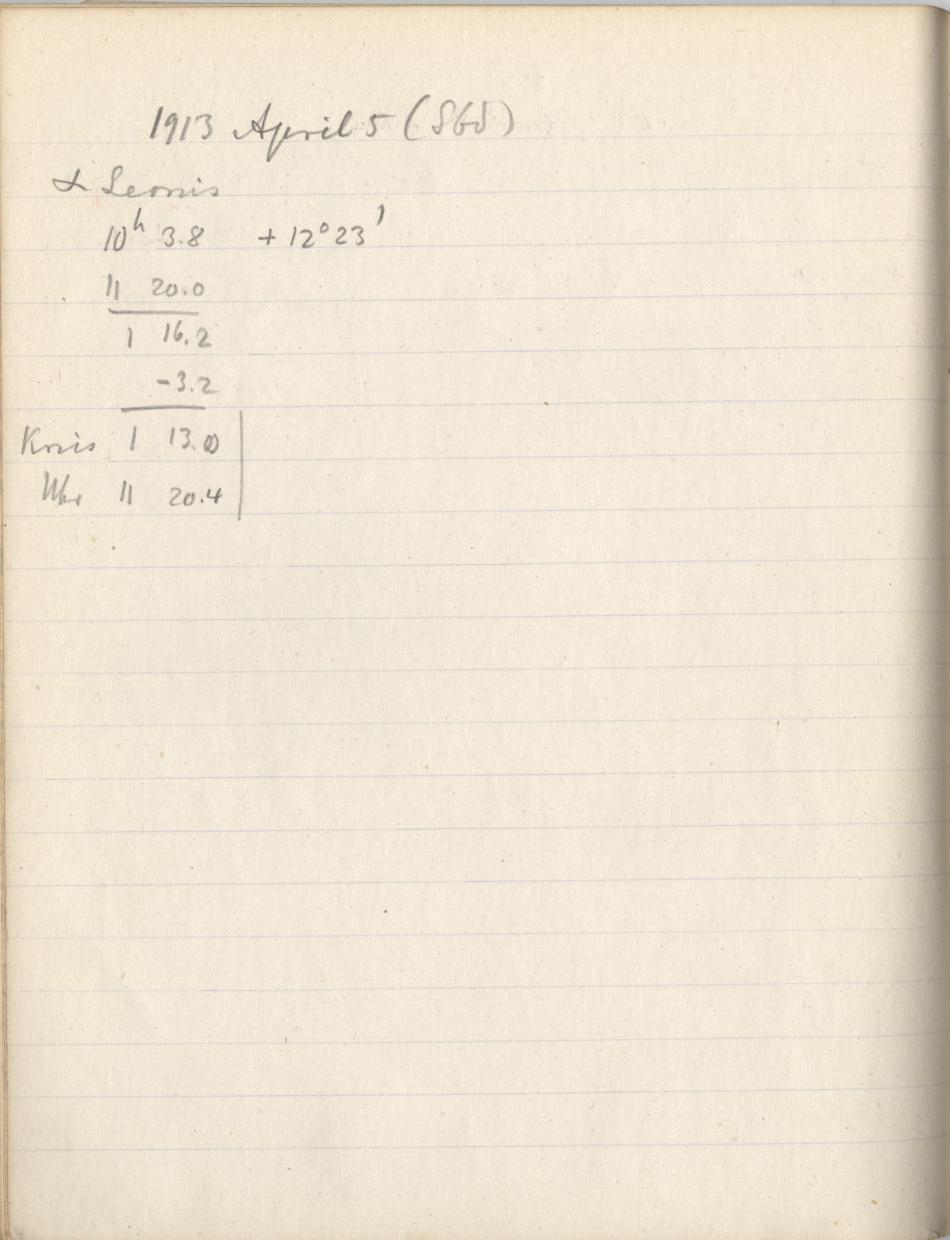 1913 April 5 (Sbd)
α Leonis
10h 3.8 + 12° 23'
11 20.0
1 16.2
-3.2
Kreis 1 13.0
Uhr 11 20.4